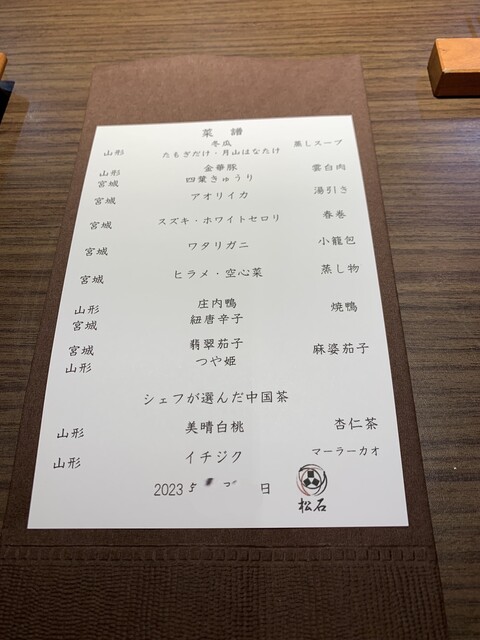 菜譜
冬瓜
山形 たもぎだけ・月山はなたけ 蒸しスープ
山形 金華豚 雲白肉
宮城 四葉きゅうり
宮城 アオリイカ 湯引き
宮城 スズキ・ホワイトセロリ 春巻
宮城 ワタリガニ 小籠包
宮城 ヒラメ・空心菜 蒸し物
山形 庄内鴨 焼鴨
宮城 紐唐辛子
宮城 翡翠茄子 麻婆茄子
山形 つや姫
シェフが選んだ中国茶
山形 美晴白桃 杏仁茶
山形 イチジク マーラーカオ
2023 日
松石